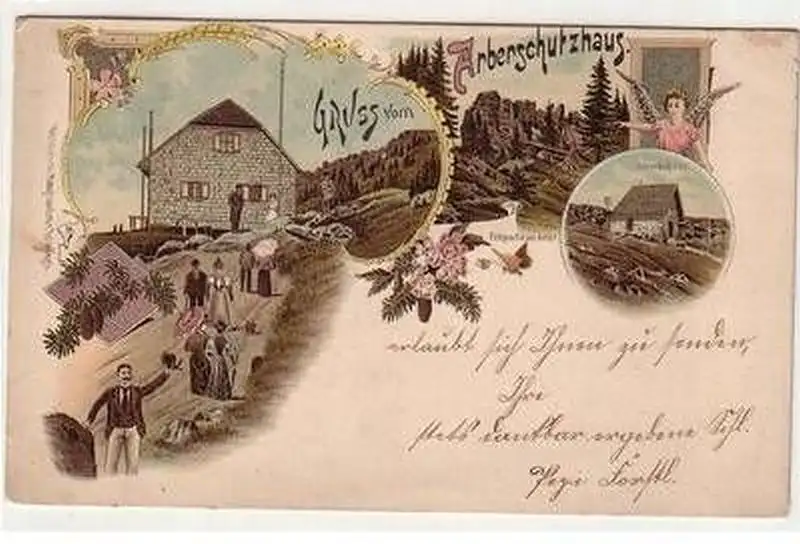 Gruss vom
Arberschutzhaus.
erlaubt sich Ihnen zu senden,
Ihre
stets dankbar ergebene Schl.
Pepi Förstl.